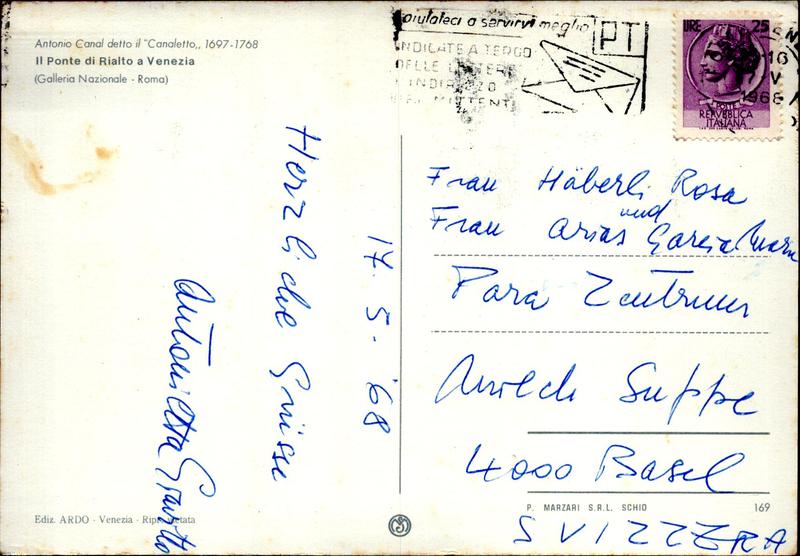 Antonio Canal detto il "Canaletto,, 1697-1768
Il Ponte di Rialto a Venezia
(Galleria Nazionale - Roma)
aiutateci a servirvi meglio
PT
INDICATE A TERGO
DELLE LETTERE
INDIRIZZO
MITTENTE
LIRE 25
POSTE
REPVBBLICA
ITALIANA
16
V
1968
Herzliche Grüsse
17. 5. '68
Antonietta
Frau Häberli Rosa
und
Frau Arias Garcia
Para Zentrum
Suppe
4000 Basel
SVIZZERA
Ediz. ARDO - Venezia - Rip. Vietata
P. MARZARI S.R.L. SCHIO
169